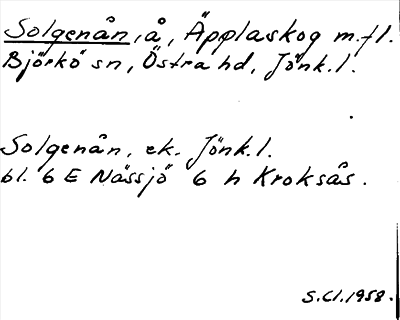 Solgenån, å, Äpplaskog m.fl.
Björkö sn, Östra hd, Jönk.l.
Solgenån, ek. Jönk.l.
bl. 6 E Nässjö 6 h Kroksås.
S.Cl.1958.